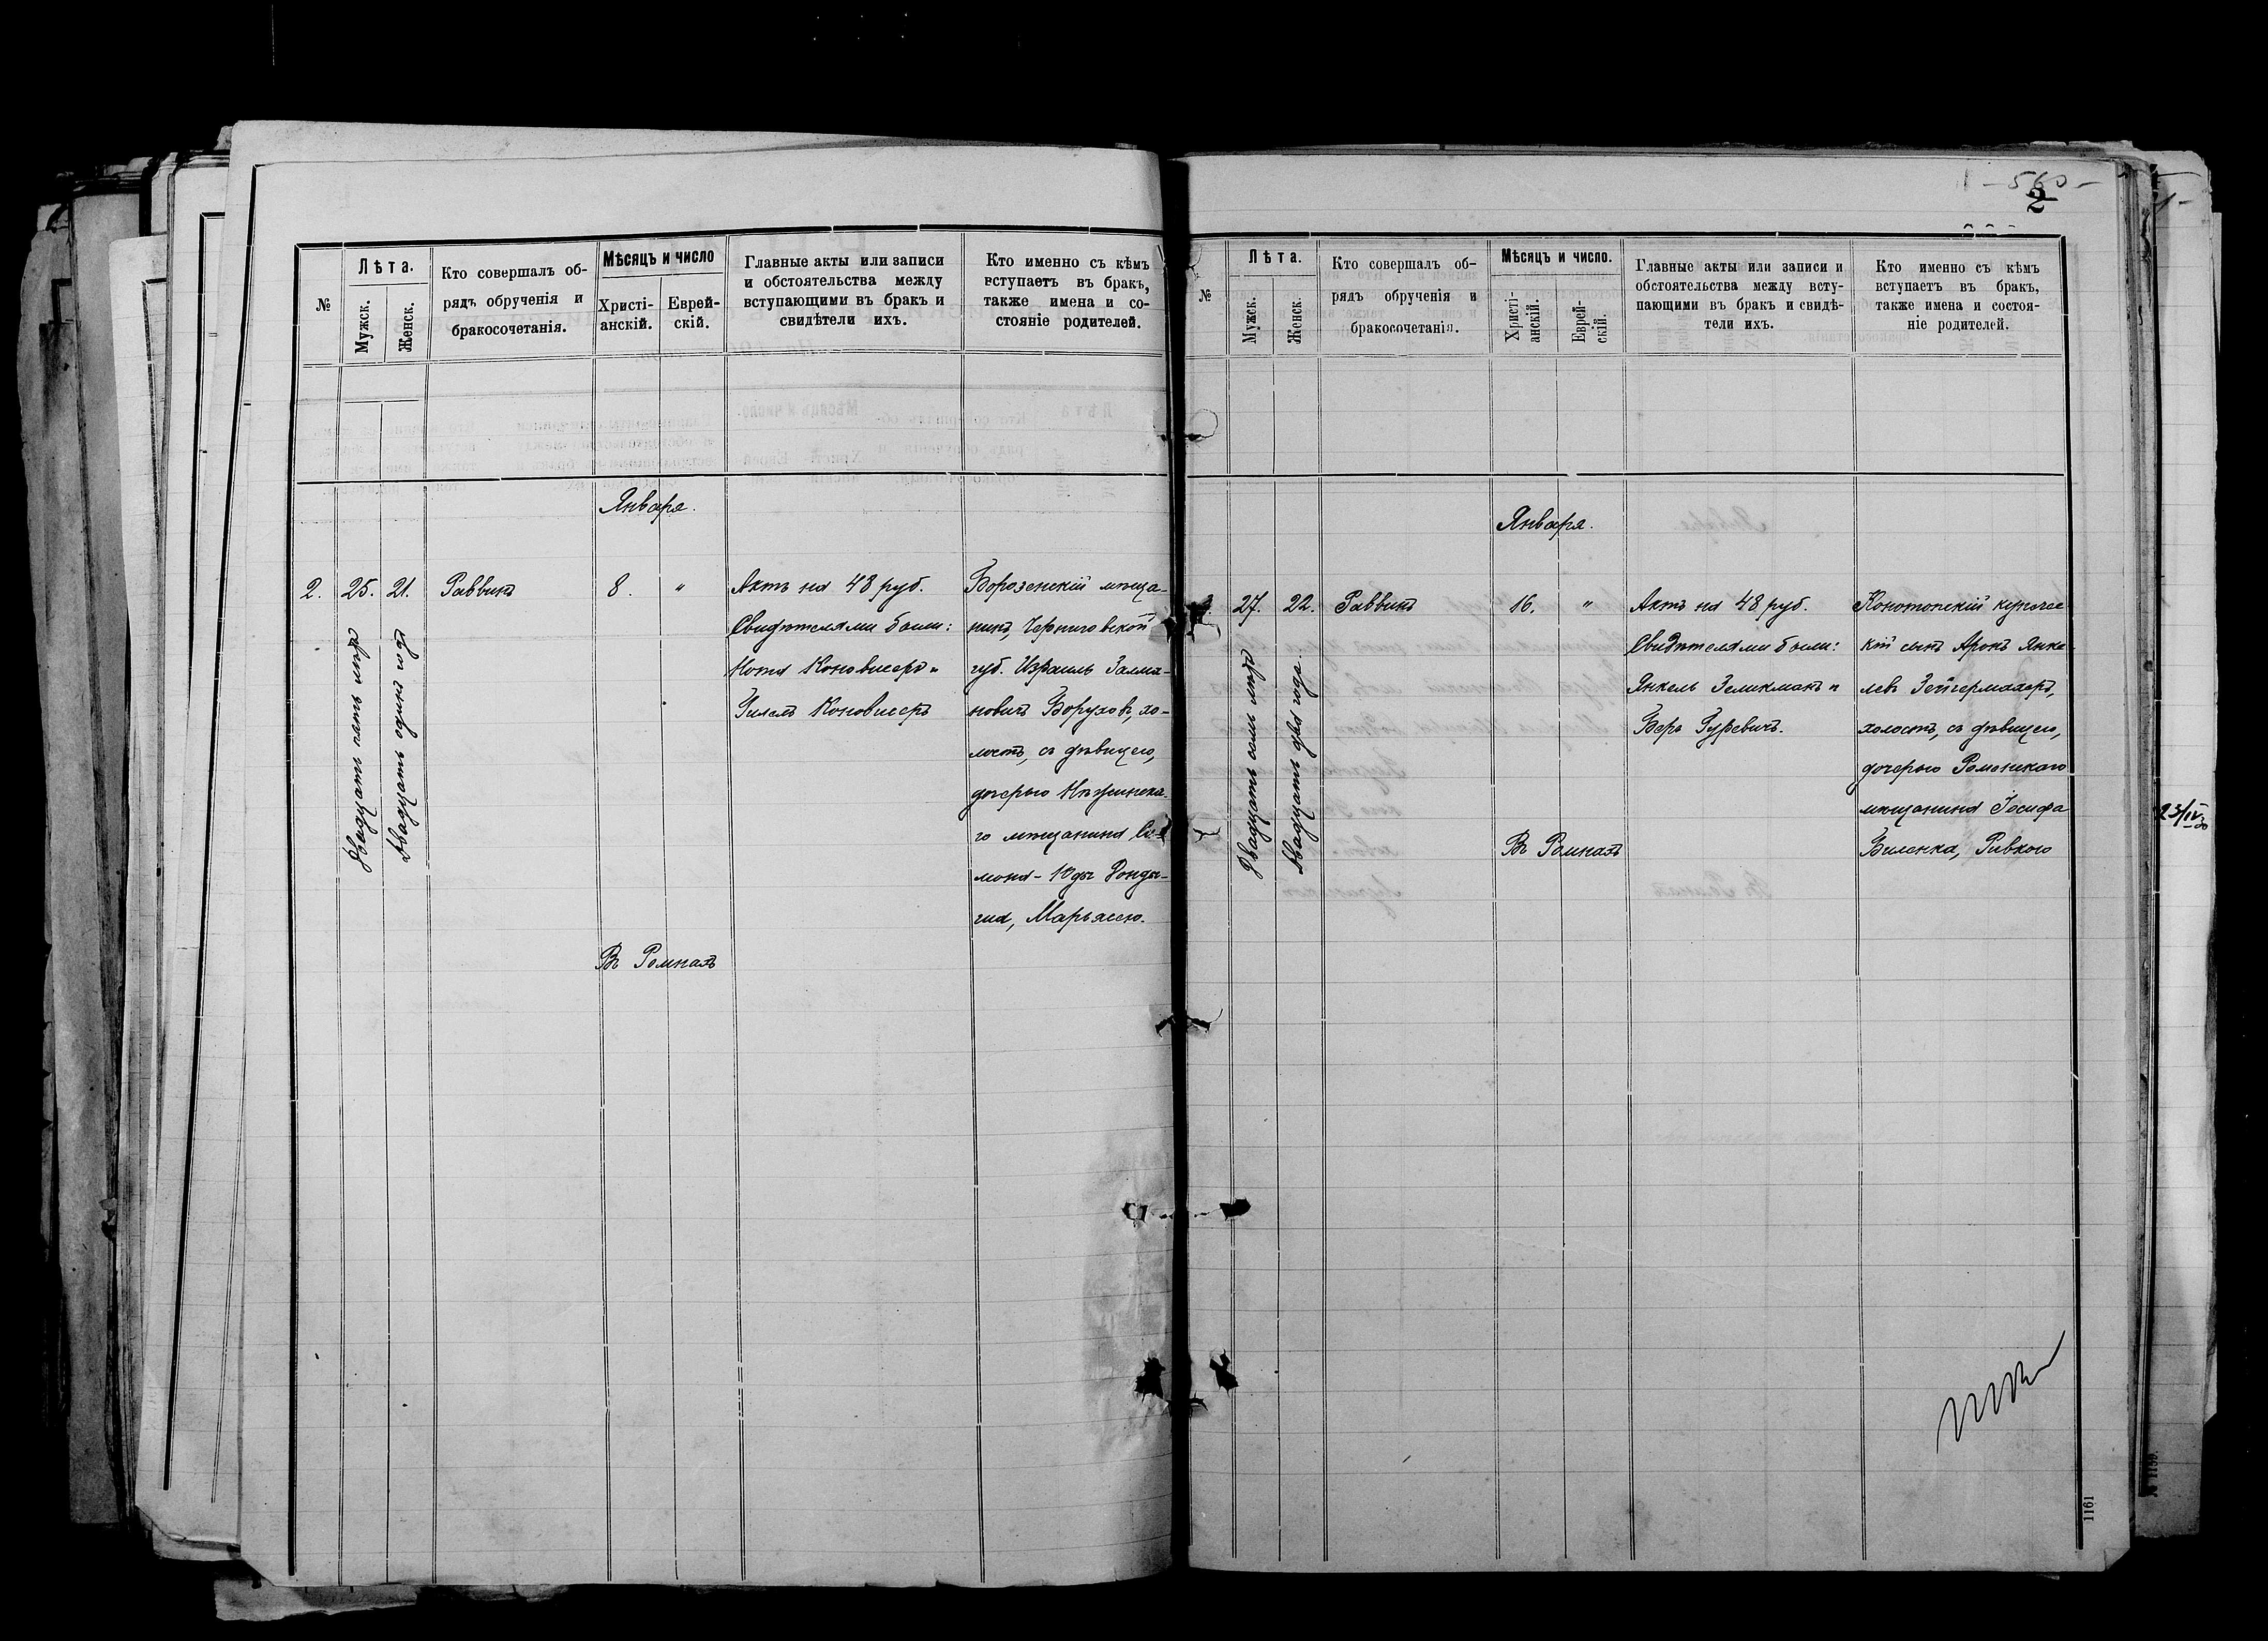 №
Лѣта.
Мужск.
Женск.
Кто совершалъ об-
рядъ обрученія и
бракосочетанія.
Мѣсяцъ и число
Христі-
анскій.
Еврей-
скій.
Главные акты или записи
и обстоятельства между
вступающими въ бракъ и
свидѣтели ихъ.
Кто именно съ кѣмъ
вступаетъ въ бракъ,
также имена и со-
стояніе родителей.
Января.
2.
25.
Двадцать пять лѣтъ
21.
Двадцать одинъ годъ
Раввинъ
8.
"
Актъ на 48 руб.
Свидѣтелями были:
Нота Коновисеръ и
Гилелъ Коновисеръ
Борозенскій мѣща-
нинъ, Черниговской
губ. Израиль Залма-
новичъ Боруховъ, хо-
лостъ, съ дѣвицею,
дочерью Нѣжинска-
го мѣщанина
Марьясею.
Въ Ромнахъ
- 560 -
2
№
Лѣта.
Мужск.
Женск.
Кто совершалъ об-
рядъ обрученія и
бракосочетанія.
Мѣсяцъ и число.
Христі-
анскій.
Еврей-
скій.
Главные акты или записи и
обстоятельства между всту-
пающими въ бракъ и свидѣ-
тели ихъ.
Кто именно съ кѣмъ
вступаетъ въ бракъ,
также имена и состоя-
ніе родителей.
Января.
27.
Двадцать семь лѣтъ
22.
Двадцать два года.
Раввинъ
16.
"
Актъ на 48 руб.
Свидѣтелями были:
Янкель Зеликманъ и
Беръ Гуревичъ.
Конотопскій купечес
кій сынъ Аронъ Янке-
левъ Зейгермахеръ,
холостъ, съ дѣвицею,
дочерью Роменскаго
мѣщанина Іосифа
Биленка, Ривкою
Въ Ромнахъ
1161